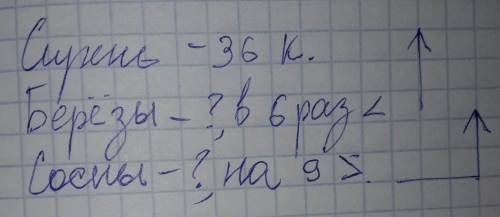 Сирень - 36 к.
Берёзы - ?, в 6 раз <
Сосны - ?, на 9 >.